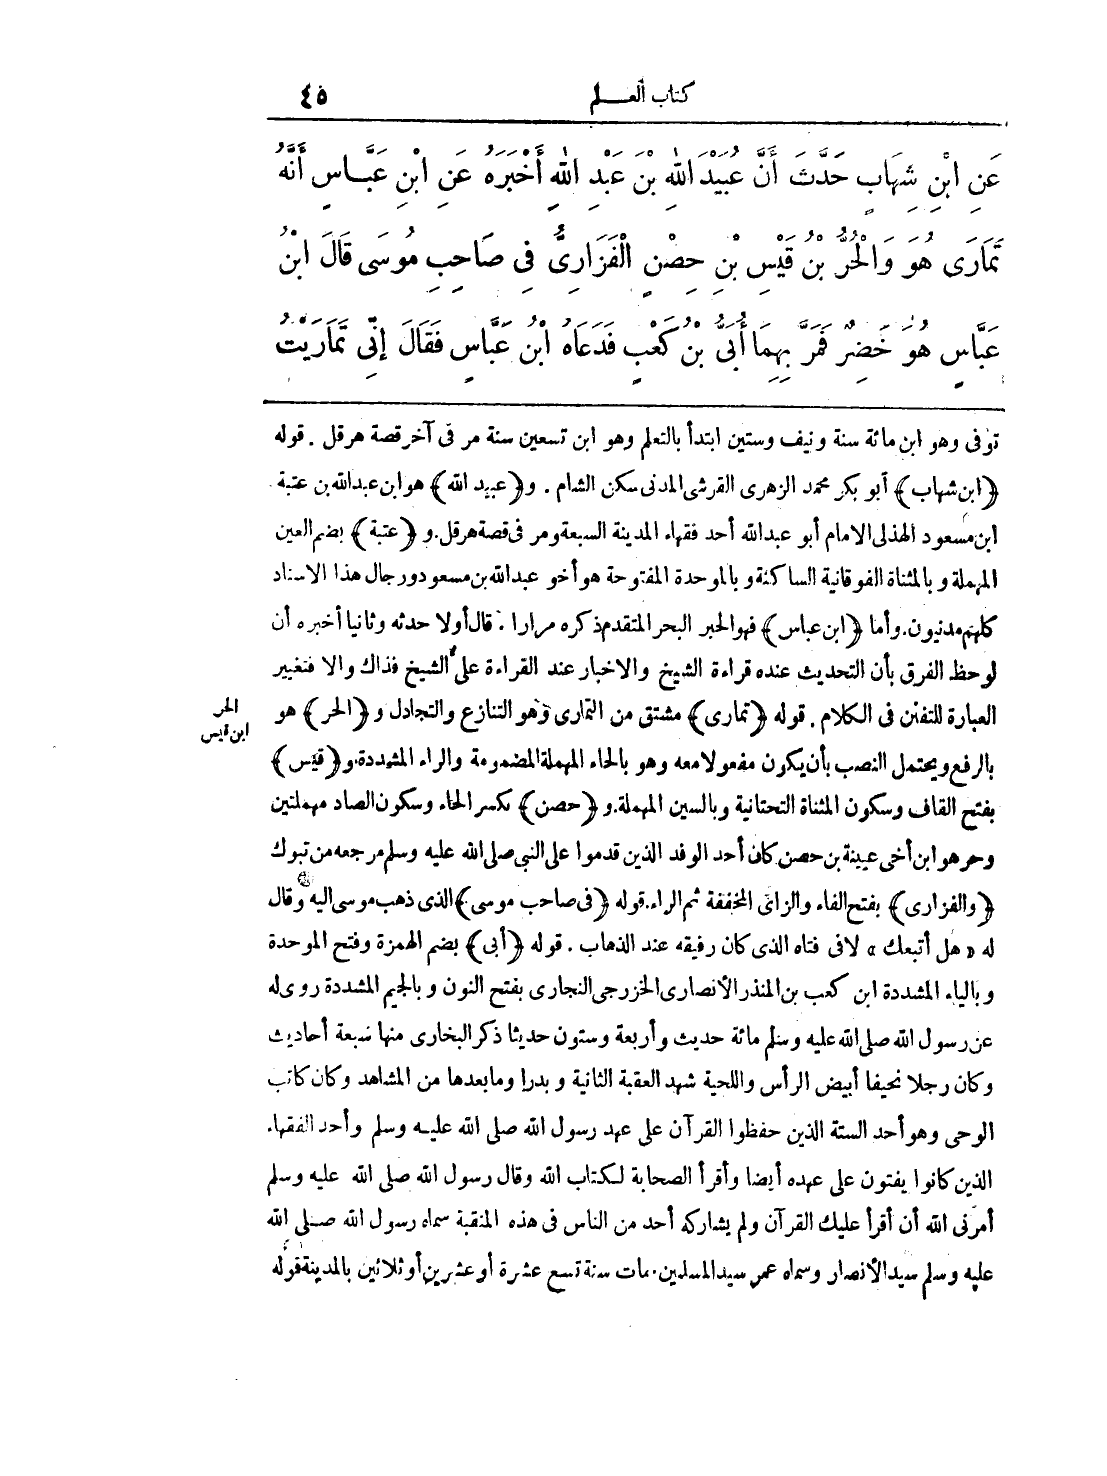 كتاب العلم ٤٥
عَنِ ابْنِ شِهَابٍ حَدَّثَ أَنَّ عُبَيْدَ اللهِ بْنَ عَبْدِ اللهِ أَخْبَرَهُ عَنِ ابْنِ عَبَّاسٍ أَنَّهُ
تَمَارَى هُوَ وَالْحُرُّ بْنُ قَيْسِ بْنِ حِصْنٍ الْفَزَارِيُّ فِي صَاحِبِ مُوسَى قَالَ ابْنُ
عَبَّاسٍ هُوَ خَضِرٌ فَمَرَّ بِهِمَا أُبَيُّ بْنُ كَعْبٍ فَدَعَاهُ ابْنُ عَبَّاسٍ فَقَالَ إِنِّي تَمَارَيْتُ
توفى وهو ابن مائة سنة ونيف وستين ابتدأ بالتعلم وهو ابن تسعين سنة مر فى آخر قصة هرقل . قوله
﴿ابن شهاب﴾ أبو بكر محمد الزهرى القرشى المدنى سكن الشام . و ﴿عبيد الله﴾ هو ابن عبد الله بن عتبة
ابن مسعود الهذلى الامام أبو عبد الله أحد فقهاء المدينة السبعة ومر فى قصة هرقل . و ﴿عتبة﴾ بضم العين
المهملة وبالمثناة الفوقانية الساكنة وبالموحدة المفتوحة هو أخو عبد الله بن مسعود ورجال هذا الاسناد
كلهم مدنيون . وأما ﴿ابن عباس﴾ فهو الحبر البحر المتقدم ذكره مرارا . قال أولا حدثه وثانيا أخبره أن
لوحظ الفرق بأن التحديث عنده قراءة الشيخ والاخبار عند القراءة على الشيخ فذاك والا فتغيير
العبارة للتفنن فى الكلام . قوله ﴿تمارى﴾ مشتق من التمارى وهو التنازع والتجادل و ﴿الحر﴾ هو
الحر
ابن قيس
بالرفع ويحتمل النصب بأن يكون مفعولا معه وهو بالحاء المهملة المضمومة والراء المشددة . و ﴿قيس﴾
بفتح القاف وسكون المثناة التحتانية وبالسين المهملة . و ﴿حصن﴾ بكسر الحاء وسكون الصاد مهملتين
وحر هو ابن أخى عيينة بن حصن كان أحد الوفد الذين قدموا على النبى صلى الله عليه وسلم مرجعه من تبوك
﴿والفزارى﴾ بفتح الفاء والزاى المخففة ثم الراء . قوله ﴿فى صاحب موسى﴾ الذى ذهب موسى اليه وقال
له « هل أتبعك » لا فى فتاه الذى كان رفيقه عند الذهاب . قوله ﴿أبى﴾ بضم الهمزة وفتح الموحدة
وبالياء المشددة ابن كعب بن المنذر الأنصارى الخزرجى النجارى بفتح النون وبالجيم المشددة روى له
عن رسول الله صلى الله عليه وسلم مائة حديث وأربعة وستون حديثا ذكر البخارى منها سبعة أحاديث
وكان رجلا نحيفا أبيض الرأس واللحية شهد العقبة الثانية وبدرا وما بعدها من المشاهد وكان كاتب
الوحى وهو أحد الستة الذين حفظوا القرآن على عهد رسول الله صلى الله عليه وسلم وأحد الفقهاء
الذين كانوا يفتون على عهده أيضا وأقرأ الصحابة لكتاب الله وقال رسول الله صلى الله عليه وسلم
أمرنى الله أن أقرأ عليك القرآن ولم يشاركه أحد من الناس فى هذه المنقبة سماه رسول الله صلى الله
عليه وسلم سيد الأنصار وسماه عمر سيد المسلمين . مات سنة تسع عشرة أو عشرين أو ثلاثين بالمدينة قوله